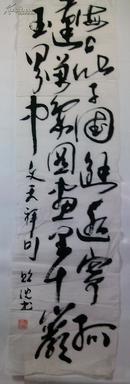 海山仙子國邂逅寄孤
蓬萬象圖畫里千巖
玉界中
文天祥句
书